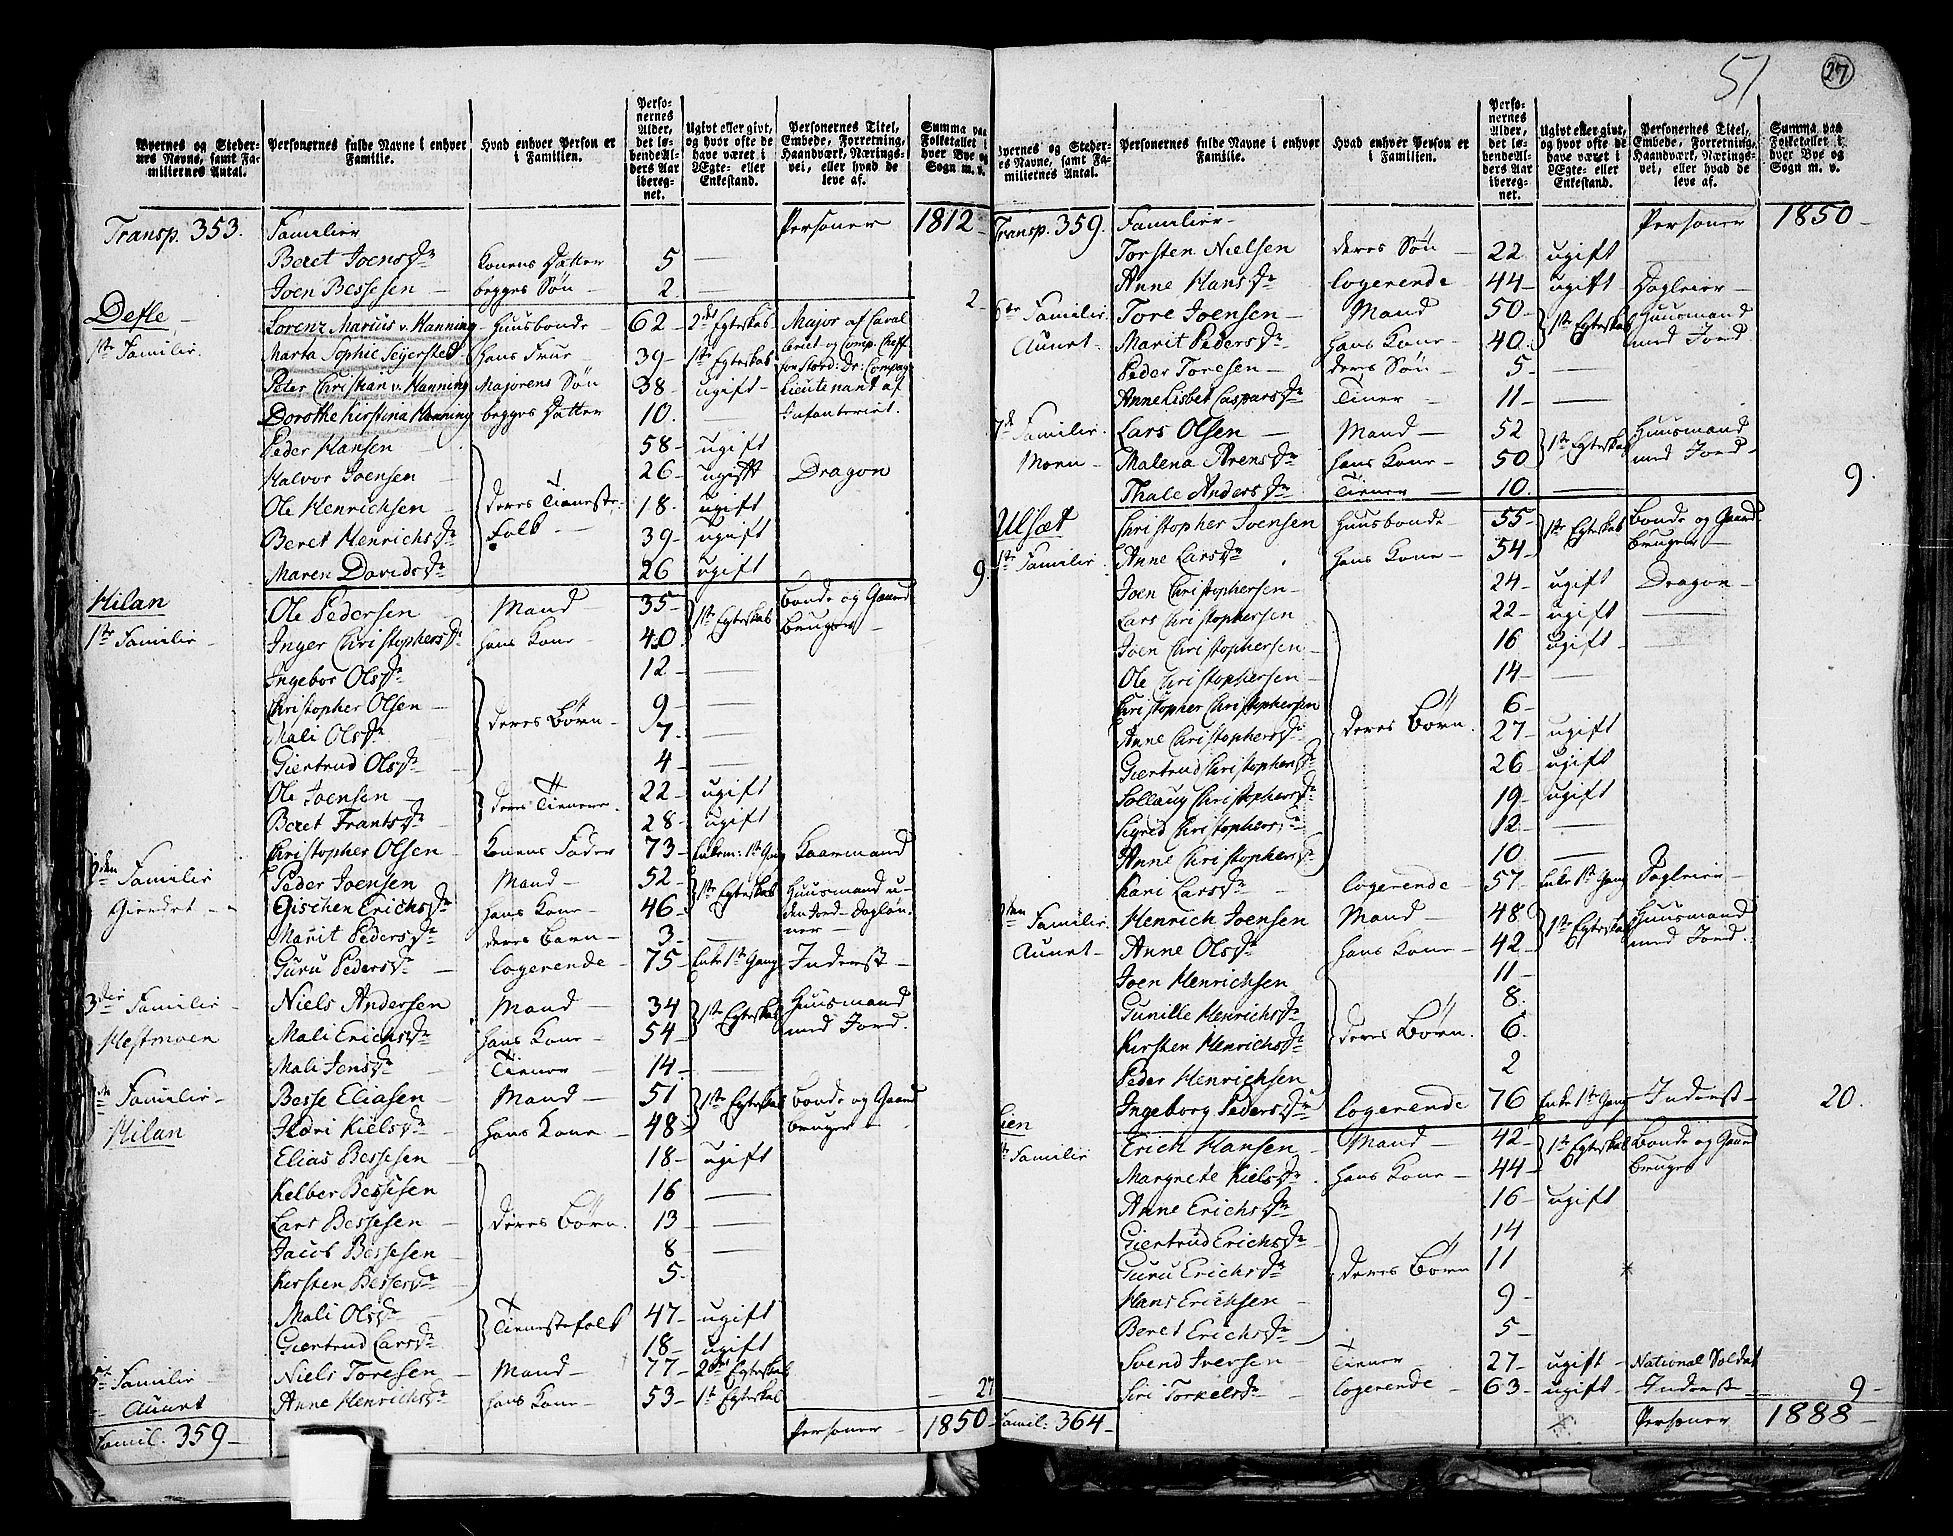 51
27
Byernes og Stedernes Navne, samt Familiernes Antal. | Personernes fulde Navne i enhver Familie. | Hvad enhver Person er i Familien. | Personernes Alder, det løbende Alders Aar iberegnet. | Ugivt eller givt, og hvor ofte de have været i Ægte- eller Enkestand. | Personernes Titel, Embede, Forretning, Haandværk, Næringsvei, eller hvad de leve af. | Summa paa Folketallet i hver Bye og Sogn m. v.
Transp. 353. Familier Personer 1812
Beret Joens Dr Konens Datter 5 —
Joen Bessesen begges Søn 2 — 2
Defle Lorenz Marius v. Hanning Huusbonde 62 2det Egteskab Major af Caval
1te Familie. Marta Sophie Seijersted hans Frue 39 1te Egteskab
Peter Christian v. Hanning Majorens Søn 38 ugift Lieutenant af
Dorothe Kirstina Hanning begges Datter 10 Infanteriet.
Peder Hansen 58 ugift
Halvor Joensen 26 ugift Dragon
Ole Henrichsen deres Tieneste 18 ugift
Beret Henrichs Dr Folk 39 ugift
Maren Davids Dr 26 ugift 9
Hilan Ole Pedersen Mand 35 1te Egteskab Bonde og Gaard
1te Familie Inger Christophers Dr hans Kone 40 bruger
Ingebor Ols Dr 12 —
Christopher Olsen 9 —
Mali Ols Dr deres Børn 7 —
Giertrud Ols Dr 4 —
Ole Joensen deres Tienere 22 ugift
Beret Frants Dr 28 ugift
Christopher Olsen Konens Fader 73 Enkem: 1te Gang Kaarmand
2den Familie Peder Joensen Mand 52 1te Egteskab Huusmand u-
Gischen Erichs Dr hans Kone 46 den Jord Dagløn
Marit Peders Dr deres Barn 3 — ner
Guru Peders Dr logerende 75 Enke 1te Gang Inderst
3die Familie Niels Andersen Mand 34 1te Egteskab Huusmand
Hestmoen Mali Erichs Dr hans Kone 54 med Jord.
Mali Jens Dr Tiener 14 —
Familie Besse Eliasen Mand 51 1te Egteskab Bonde og Gaard
Hilan Kiels Dr hans Kone 48 bruger
Elias Bessesen 18 ugift
Kelber Bessesen 16 —
Lars Bessesen deres Børn. 13 —
Jacob Bessesen 8 —
Kirsten Besses Dr 5
Mali Ols Dr Tienestefolk 47 ugift
Giertrud Lars Dr 18 ugift
5te Familie Niels Toresen Mand 77 2det Egteskab
Aunet Anne Henrichs Dr hans Kone 53 1te Egteskab 27
Famil. 359 Personer 1850
Byernes og Stedernes Navne, samt Familiernes Antal. | Personernes fulde Navne i enhver Familie. | Hvad enhver Person er i Familien. | Personernes Alder, det løbende Alders Aar iberegnet. | Ugivt eller givt, og hvor ofte de have været i Ægte- eller Enkestand. | Personernes Titel, Embede, Forretning, Haandværk, Næringsvei, eller hvad de leve af. | Summa paa Folketallet i hver Bye og Sogn m. v.
Transp. 359. Familier Personer 1850
Torsten Nielsen deres Søn 22 ugift
Anne Hans Dr logerende 44 ugift Dagleier
6te Familie Tore Joensen Mand 50 1te Egteskab Huusmand
Aunet Marit Peders Dr hans Kone 40 med Jord.
Peder Toresen deres Søn 5 —
Anne Lisbet Caspars Dr Tiener 11 —
7de Familie Lars Olsen Mand 52 1te Egteskab Huusmand
Moen Malena Arens Dr hans Kone 50 med Jord
Thale Anders Dr Tiener 10 — 9
Ulsæt Christopher Joensen Huusbonde 55 1te Egteskab Bonde og Gaard
1te Familie Anne Lars Dr hans Kone 54 bruger
Joen Christophersen 24 ugift Dragon
Lars Christophersen 22 ugift
Joen Christophersen 16 ugift
Ole Christophersen 14 —
Christopher Christophersen 6
Anne Christophers Dr deres Børn 27 ugift
Giertrud Christophers Dr 26 ugift
Sollaug Christophers Dr 19 ugift
Sigrid Christophers Dr 12 —
Anne Christophers Dr 10 —
Kari Lars Dr logerende 57 Enke 1te Gang Dagleier
2den Familie Henrich Joensen Mand 48 1te Egteskab Huusmand
Aunet Anne Ols Dr hans Kone 42 med Jord
Joen Henrichsen 11
Gunille Henrichs Dr 8
Kirsten Henrichs Dr deres Børn 6
Peder Henrichsen 2
Ingeborg Peders Dr logerende 76 Enke 1te Gang Inderst 20
Lien Erich Hansen Mand 42 1te Egteskab Bonde og Gaard
1te Familie Margrete Kiels Dr hans Kone 44 bruger
Anne Erichs Dr 16 ugift
Giertrud Erichs Dr 14
Guru Erichs Dr deres Børn 11
Hans Erichsen 9
Beret Erichs Dr 5
Svend Iversen Tiener 27 ugift National Soldat
Siri Torkels Dr logerende 63 ugift Inderst 9
Famil. 364 Personer 1888